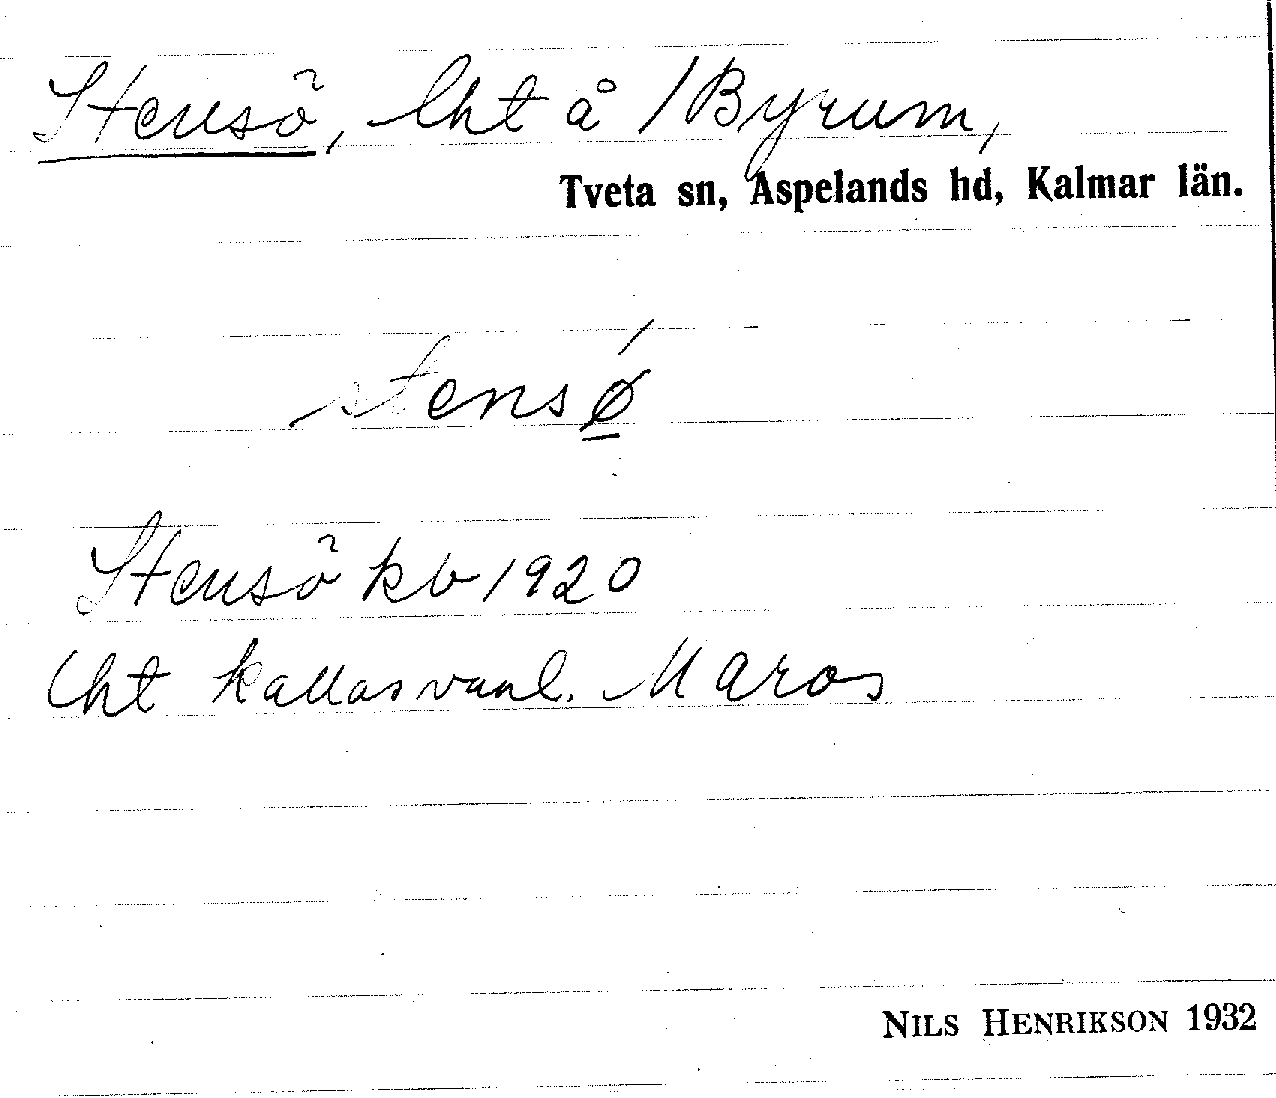 Stensö, lht å 1 Byrum,
Tveta sn, Aspelands hd, Kalmar län.
stensǿ̱
Stensö kb 1920
lht kallas vanl. Maros
NILS HENRIKSON 1932